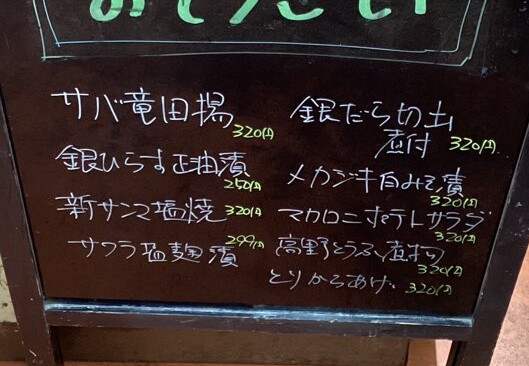 おそうざい
サバ竜田揚
320円
銀ひらす正油漬
250円
新サンマ塩焼 320円
サワラ塩麹漬
299円
銀だら切出
煮付 320円
メカジキ白みそ漬
320円
マカロニポテトサラダ
320円
高野とうふ煮物
320円
とりからあげ 320円